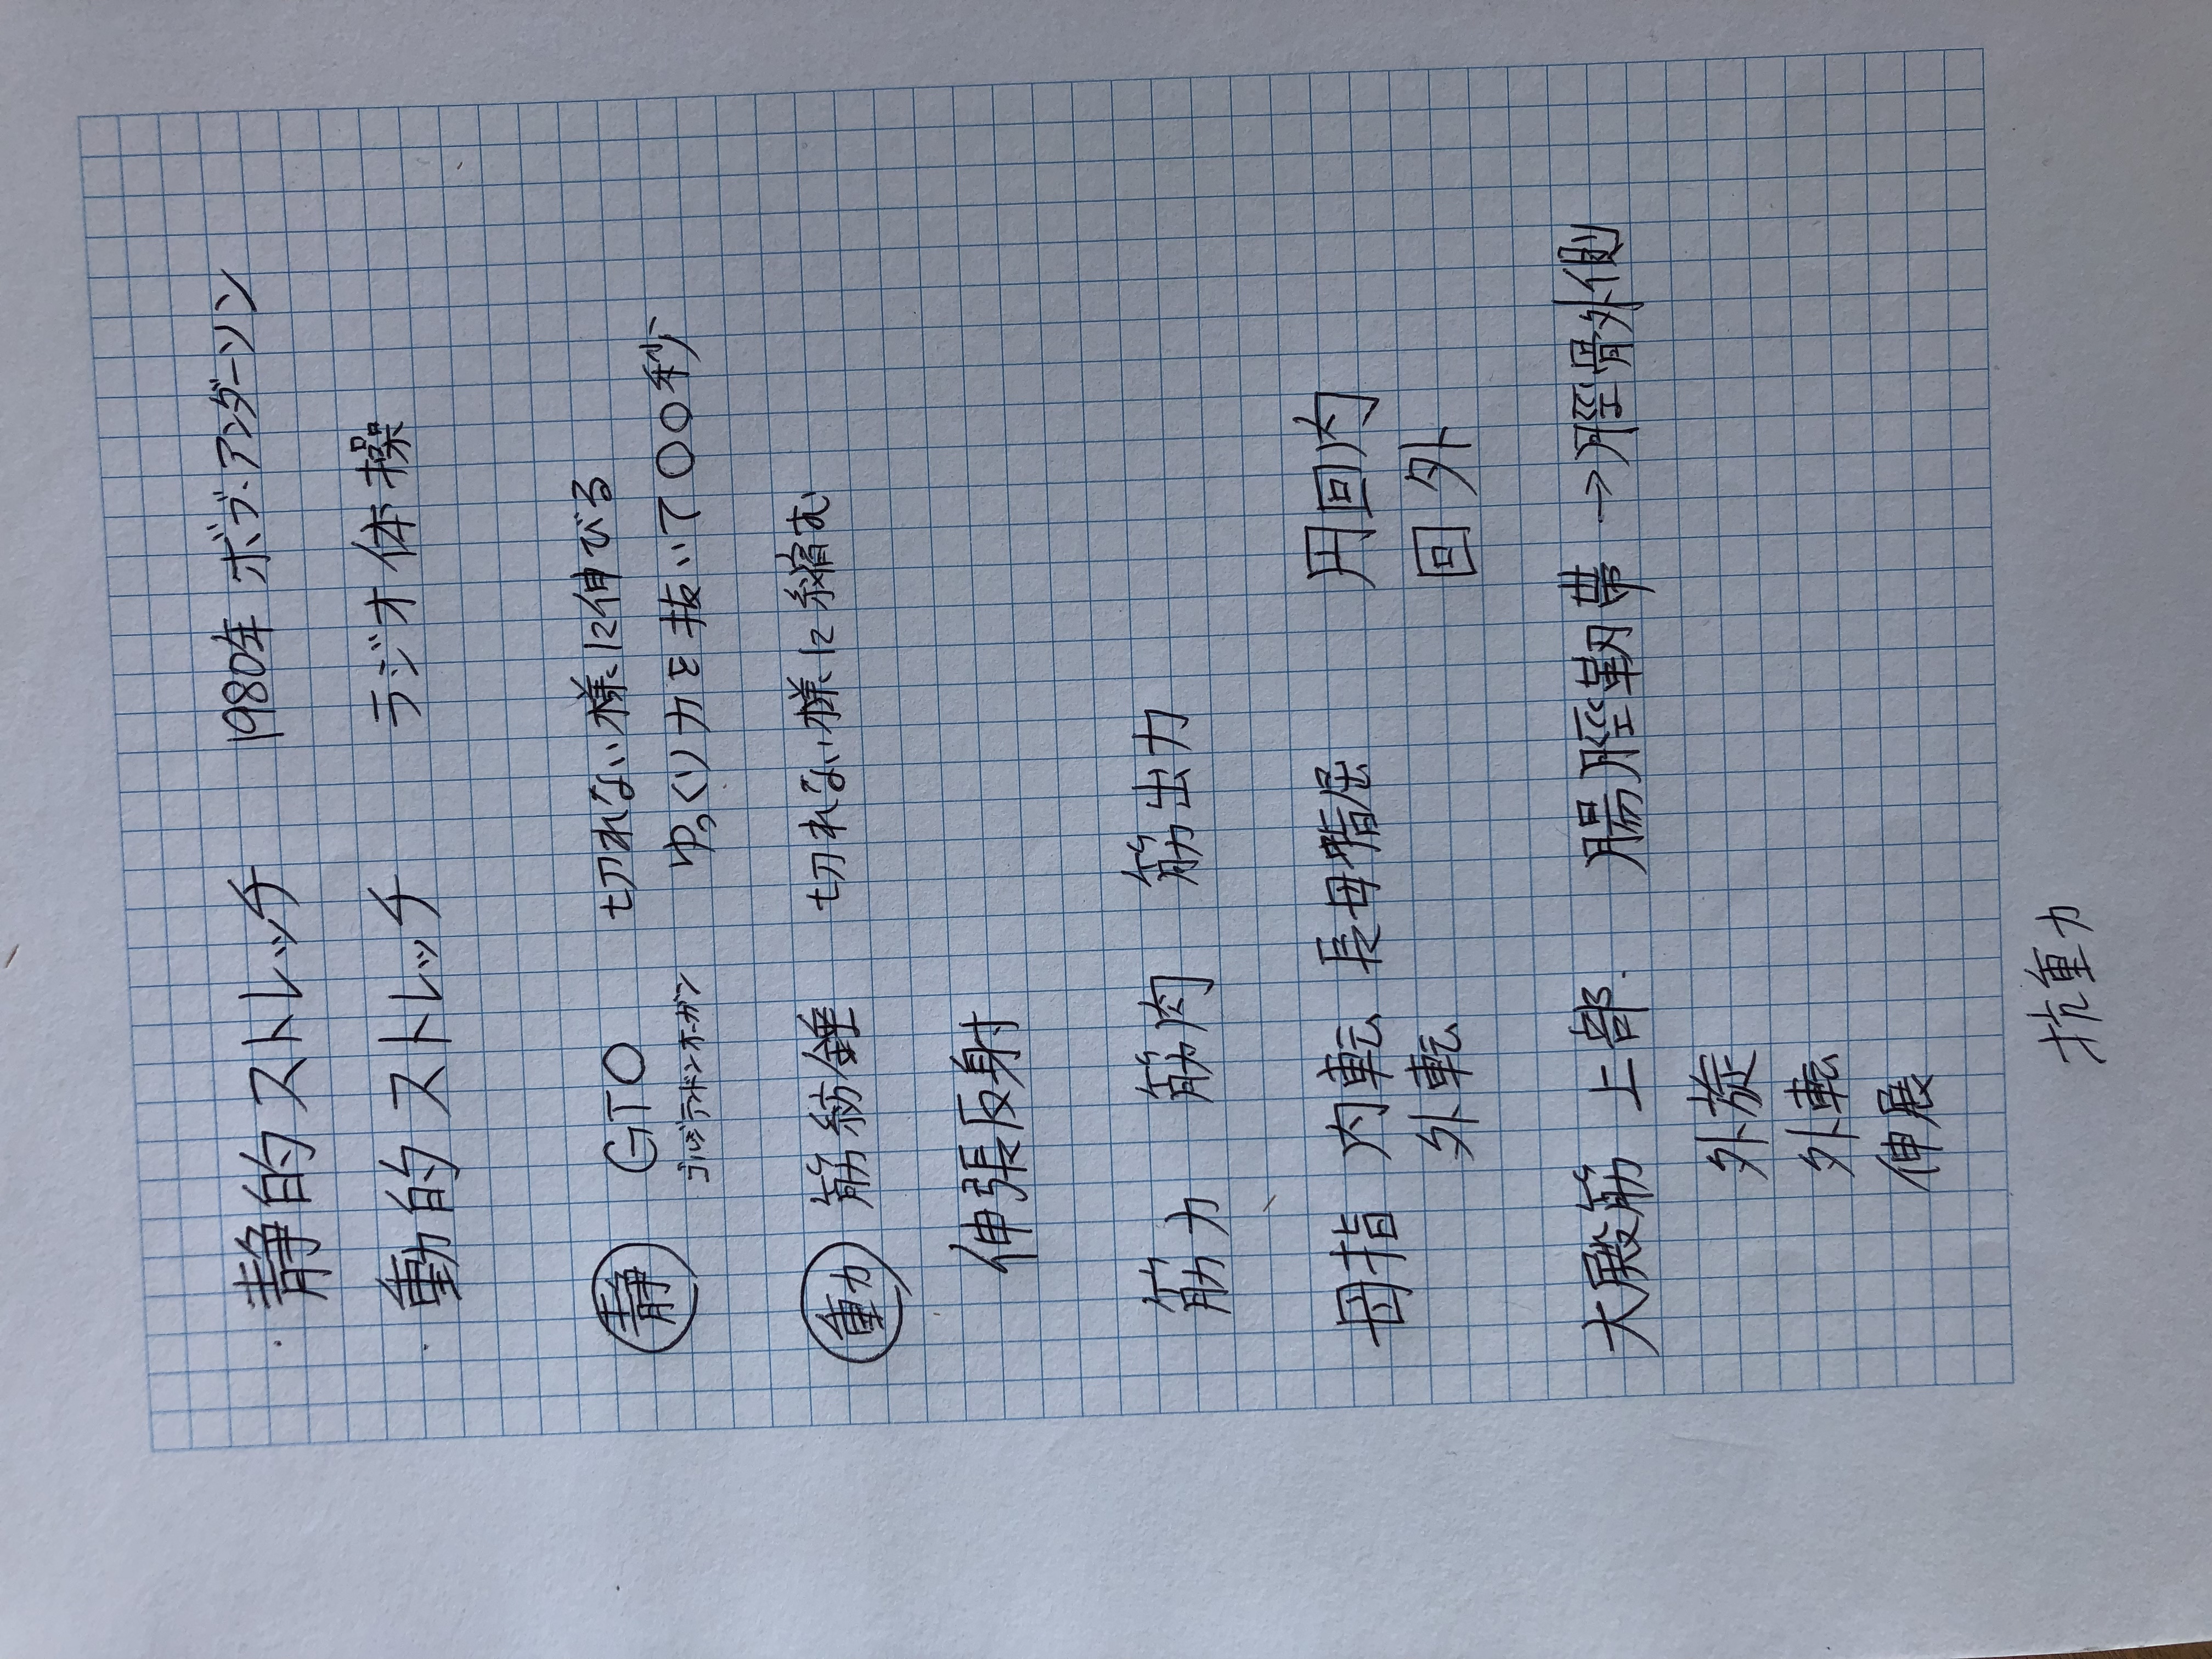 ・静的ストレッチ 1980年 ボブ・アンダーソン
・動的ストレッチ ラジオ体操
静 GTO 切れない様に伸びる
ゴルジテンドンオーガン ゆっくり力を抜いて〇〇秒
動 筋紡錘 切れない様に縮む
伸張反射
筋力 筋肉 筋出力
母指 内転 長母指屈 円回内
外転 回外
大殿筋 上部 腸脛靭帯→脛骨外側
外旋
外転
伸展
抗重力